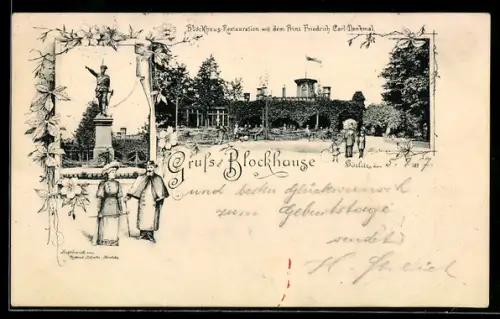 Blockhaus-Restauration mit dem Prinz Friedrich Carl-Denkmal.
Gruss Blockhause
Görlitz, den 5. 97.
und besten Glückwunsch
zum Geburtstage
sendet
H.